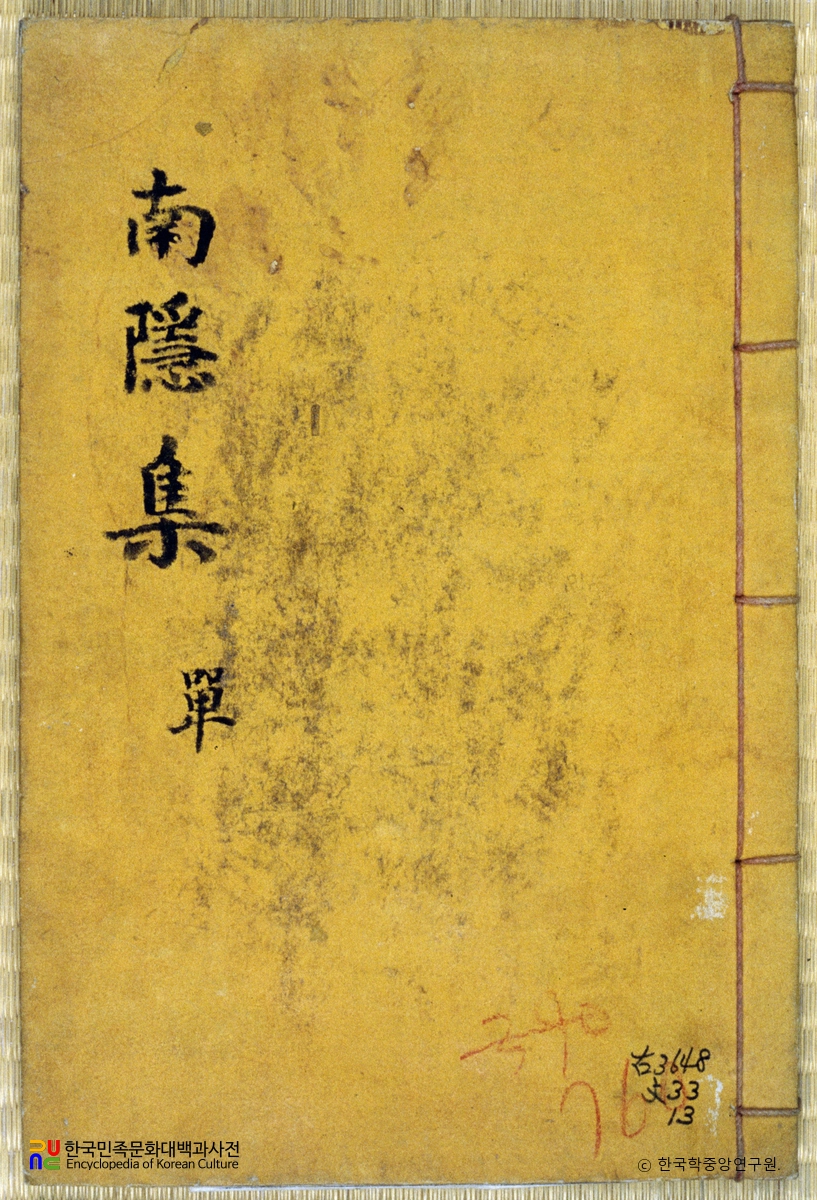 南隱集
單
古3648
文33
13
한국민족문화대백과사전
Encyclopedia of Korean Culture
ⓒ 한국학중앙연구원.